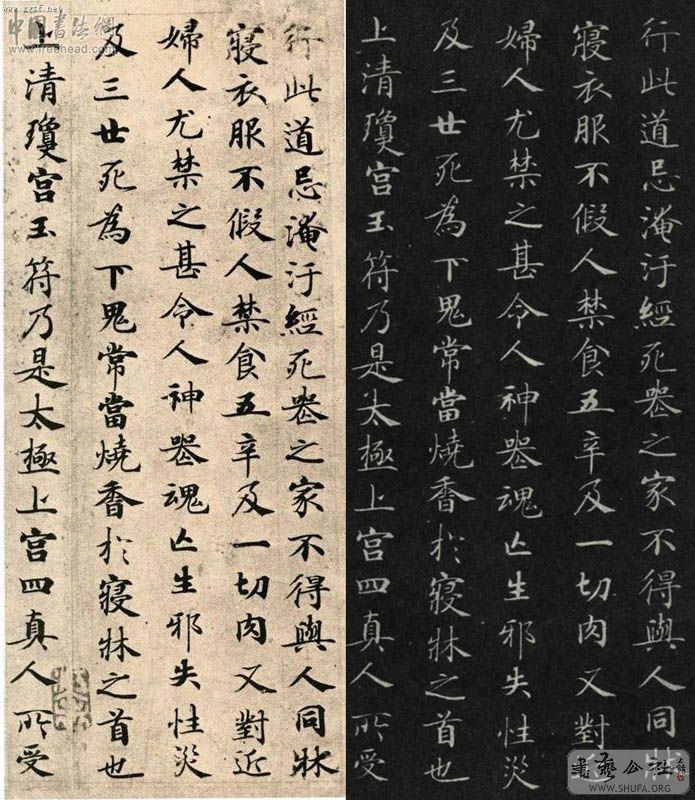 www.zgsf.net
中国书法網
www.freehead.com
行此道忌淹汙經死喪之家不得與人同牀
寢衣服不假人禁食五辛及一切肉又對近
婦人尤禁之甚令人神喪魂亡生邪失性災
及三世死為下鬼常當燒香於寢牀之首也
上清瓊宮玉符乃是太極上宮四真人所受
行此道忌淹汙經死喪之家不得與人同牀
寢衣服不假人禁食五辛及一切肉又對近
婦人尤禁之甚令人神喪魂亡生邪失性災
及三世死為下鬼常當燒香於寢牀之首也
上清瓊宮玉符乃是太極上宮四真人所受
書藝公社
www.SHUFA.ORG